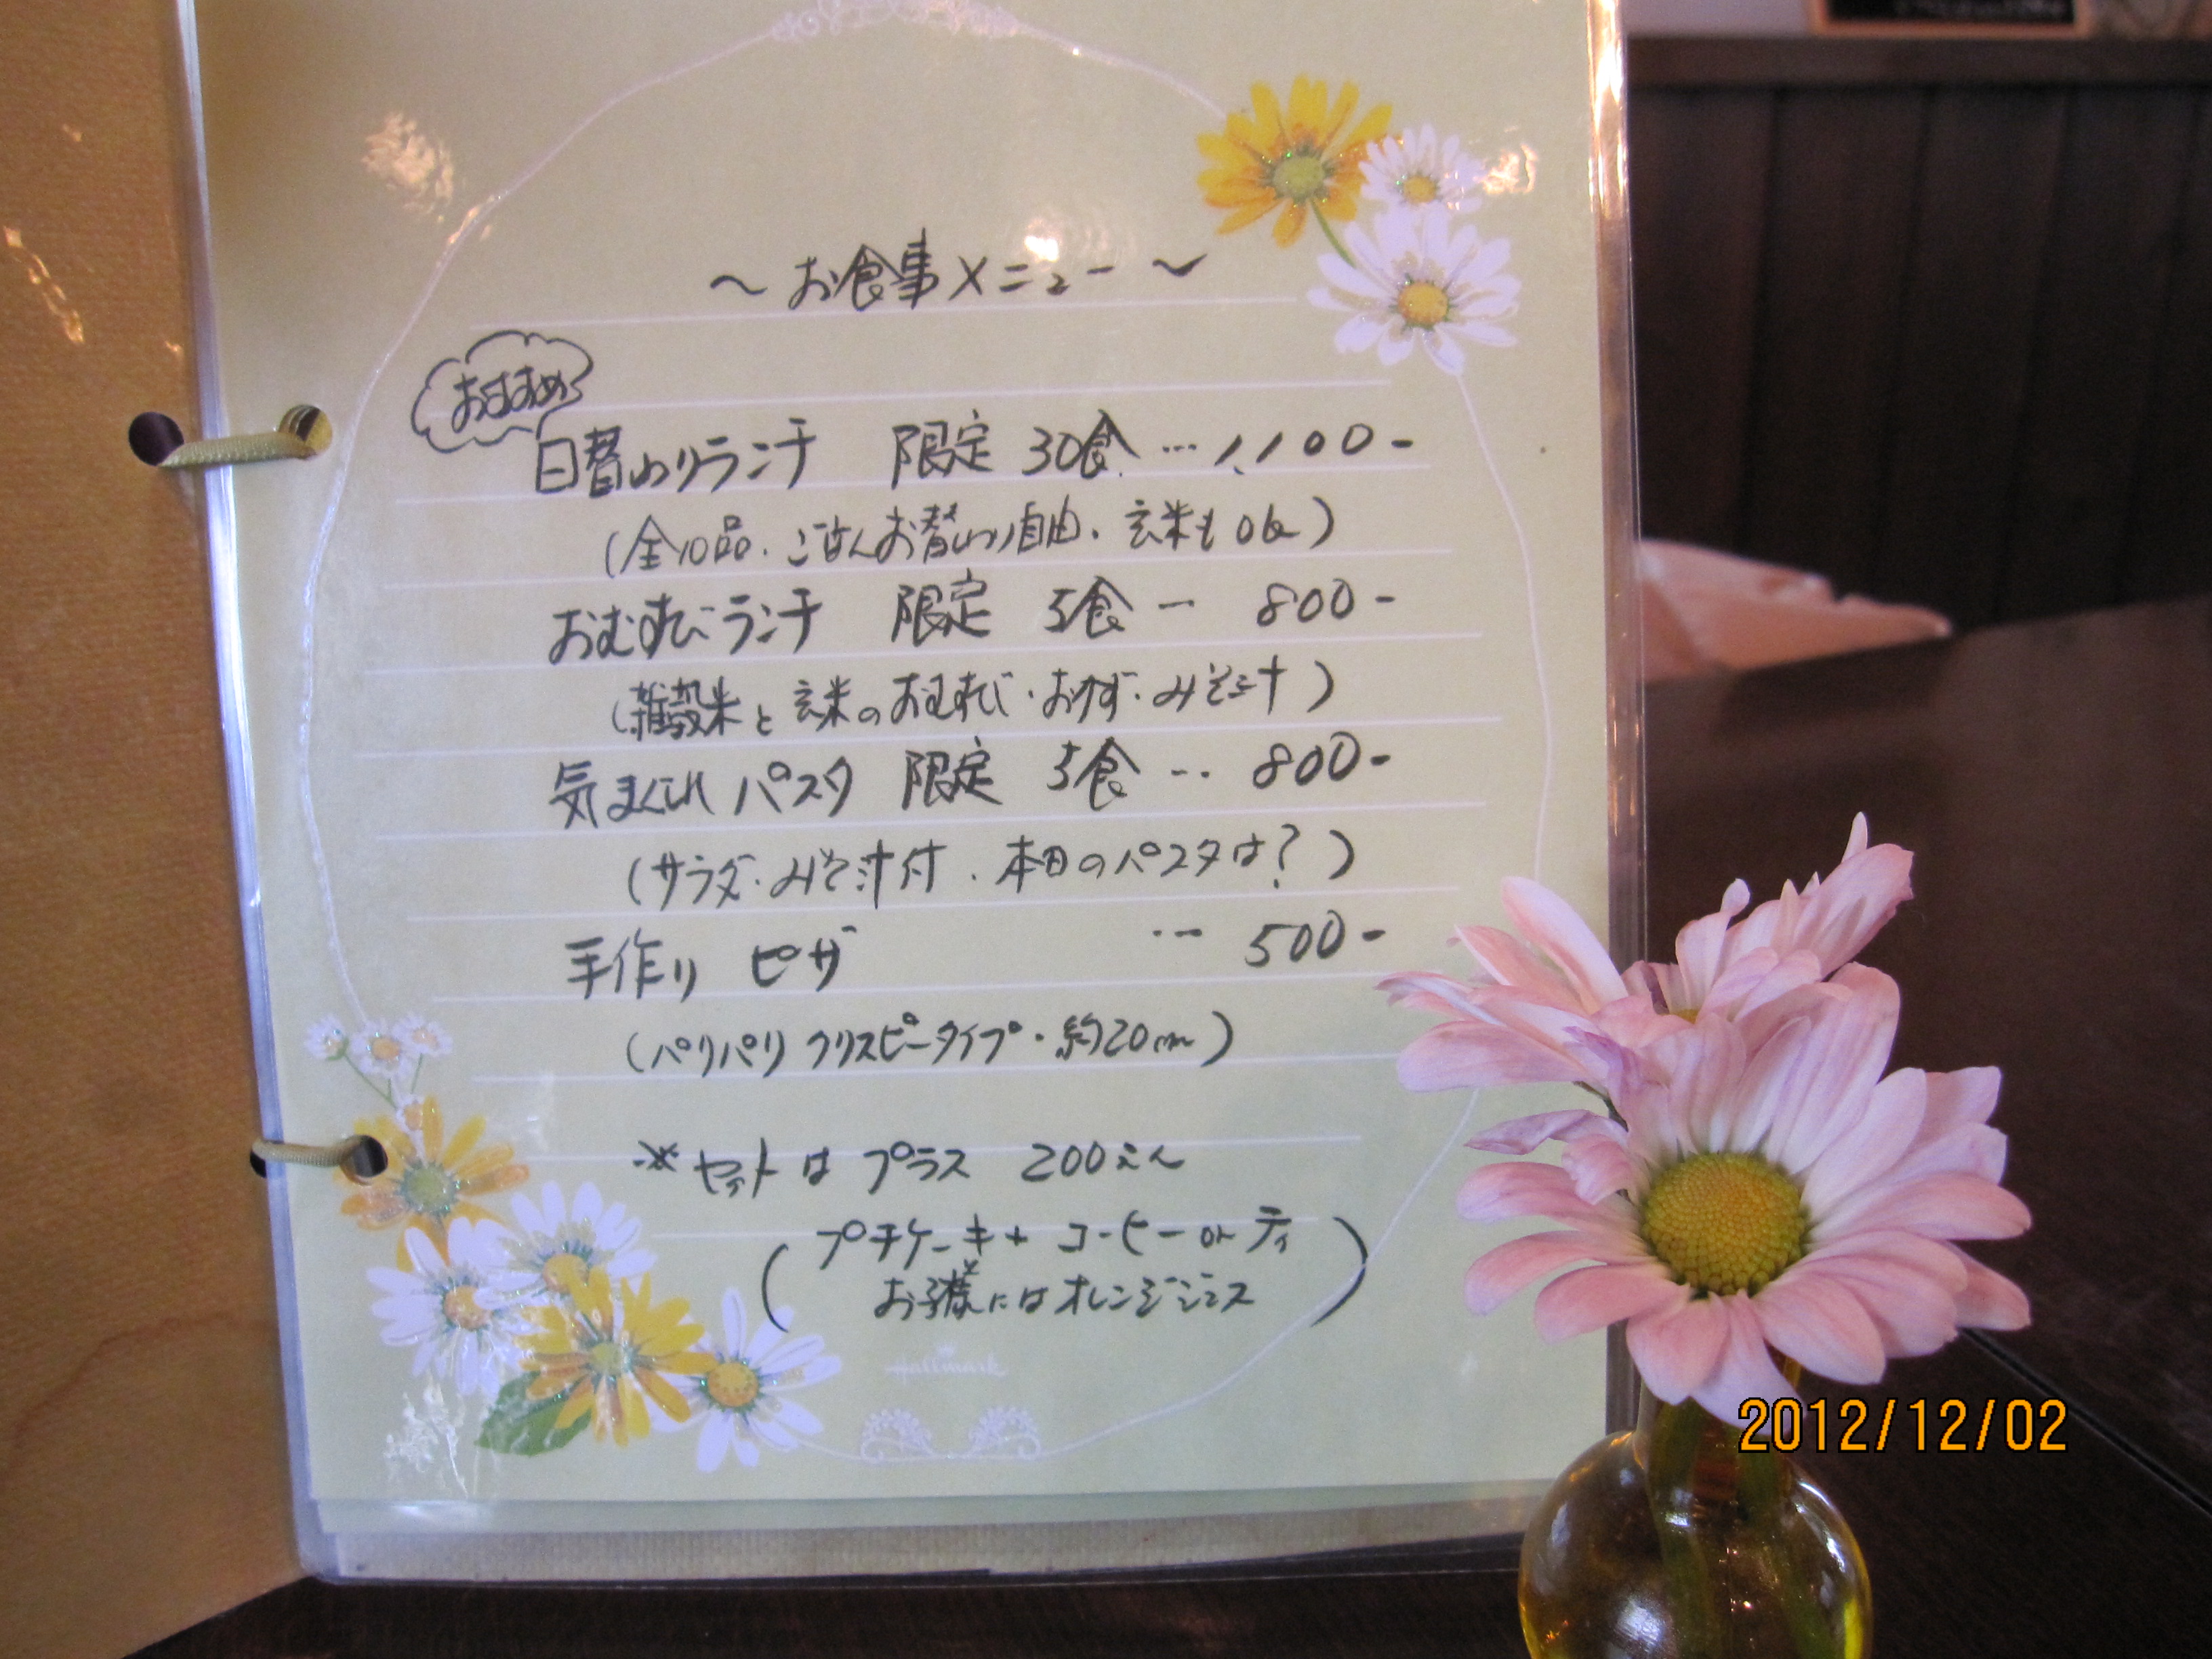 ～お食事メニュー～
おすすめ
日替わりランチ 限定 30食 … 1,100-
(全10品・ごはんお替わり自由・玄米もOK)
おむすびランチ 限定 5食 … 800-
(雑穀米と玄米のおむすび・おかず・みそ汁)
気まぐれ パスタ 限定 5食 … 800-
(サラダ・みそ汁付・本日のパスタは?)
手作り ピザ … 500-
(パリパリ クリスピータイプ・約20cm)
※セットは プラス 200えん
(プチケーキ+ コーヒー or ティ
お子様にはオレンジジュース)
Hallmark
2012/12/02